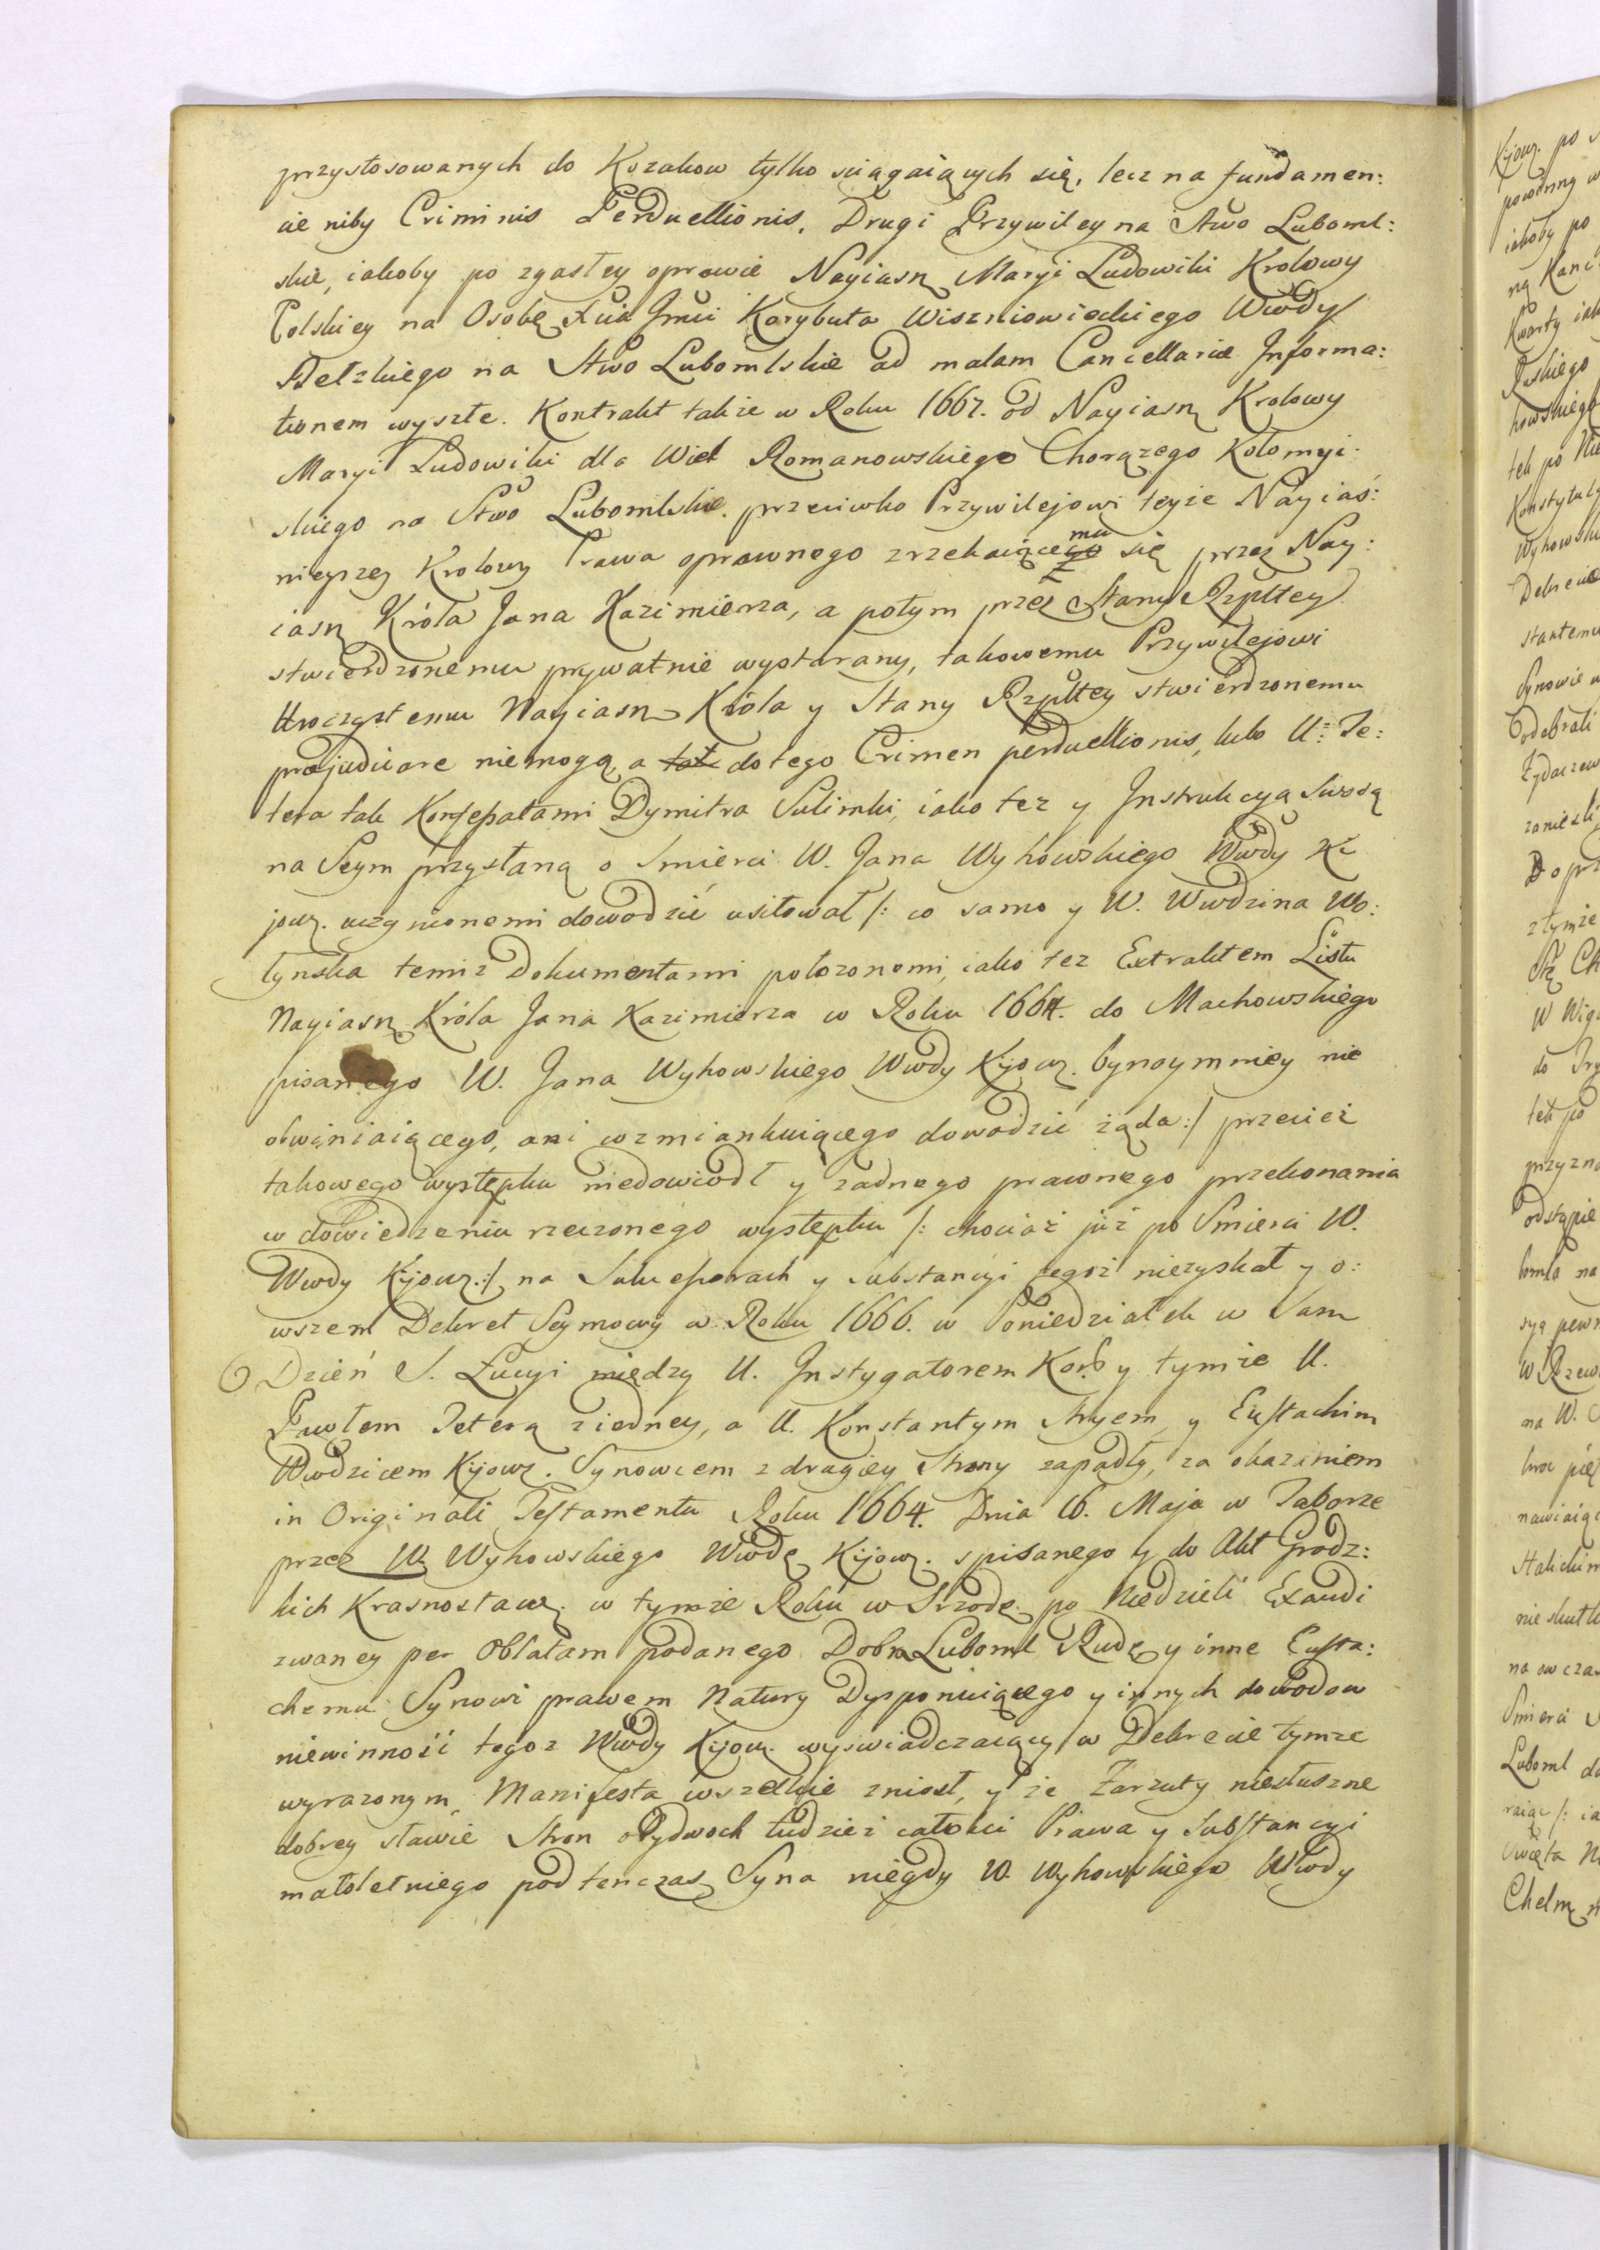 przystosowanych do Kozakow tylko sciągaiących się, lecz na fundamen:
cie niby Criminis Perduellionis. Drugi Przywiley na Stwo Luboml:
skie, iakoby po zgasłey oprawie Nayiasn Maryi Ludowiki Krolowy
Polskiey na Osobę Xcia Jmci Korybuta Wiszniowieckiego Wwdy
Bełzkiego na Stwo Lubomlskie ad malam Cancellariæ Informa:
tionem wyszłe. Kontrakt także w Roku 1667. od Nayiasn Krolowy
Maryi Ludowiki dla Wiel Romanowskiego Chorązego Kołomyi:
skiego na Stwo Lubomlskie. przeciwko Przywilejowi teyże Nayiaś:
nieyszey Krolowy Prawa oprawnego zrzekaiącemu się przez Nay:
iasn Króla Jana Kazimierza, a potym przez Stany Rzpltey
stwierdzonemu prywatnie wystarany, takowemu Przywilejowi
Uroczystemu Nayiasn Króla y Stany Rzpltey stwierdzonemu
præjudicare niemogą, a do tego Crimen perduellionis, lubo U: Te:
tera tak Konfessatami Dymitra Sulimki, iako tez y Instrukcyą Swoią
na Seym przysłaną o Smierci W. Jana Wyhowskiego Wwdy Ki
jow. uczynionemi dowodzić usiłował /: co samo y W. Wwdzina Wo:
łynska temiz Dokumentami położonemi, iako tez Extraktem Listu
Nayiasn Króla Jana Kazimierza w Roku 1664. do Machowskiego
pisanego W. Jana Wyhowskiego Wwdy Kijow. bynaymniey nie
obwiniaiącego, ani wzmiankuiącego dowodzić żąda :/ przecież
takowego występku niedowiodł y żadnego prawnego przekonania
w dowiedzeniu rzeczonego występku /: chociaż już po Smierci W.
Wwdy Kijow. :/ na Sukcessorach y substancyi tegoż niezyskał y o:
wszem Dekret Seymowy w Roku 1666. w Poniedziałek w Sam
Dzień S. Łucyi między U. Instygatorem Kor. y tymże U.
Pawłem Teterą z iedney, a U. Konstantym Stryem y Eustachim
Wwdzicem Kijow. Synowcem z drugiey Strony zapadły, za okazaniem
in Originali Testamentu Roku 1664. Dnia 16. Maja w Taborze
przez W Wyhowskiego Wwdę Kijow. spisanego y do Akt Grodz:
kich Krasnostaw. w tymże Roku w Srzodę po Niedzieli Exaudi
zwaney per Oblatam podanego Dobra Luboml Rudę y inne Eusta:
chemu Synowi prawem Natury Dysponuiącego y innych dowodow
niewinności tegoz Wwdy Kijow. wyswiadczaiący w Dekrecie tymze
wyrazonym, Manifesta wszelkie zniosł, y że Zarzuty niesłuszne
dobrey sławie Stron obydwoch tudzież całosci Prawa y Substancyi
małoletniego podtenczas Syna niegdy W. Wyhowskiego Wwdy